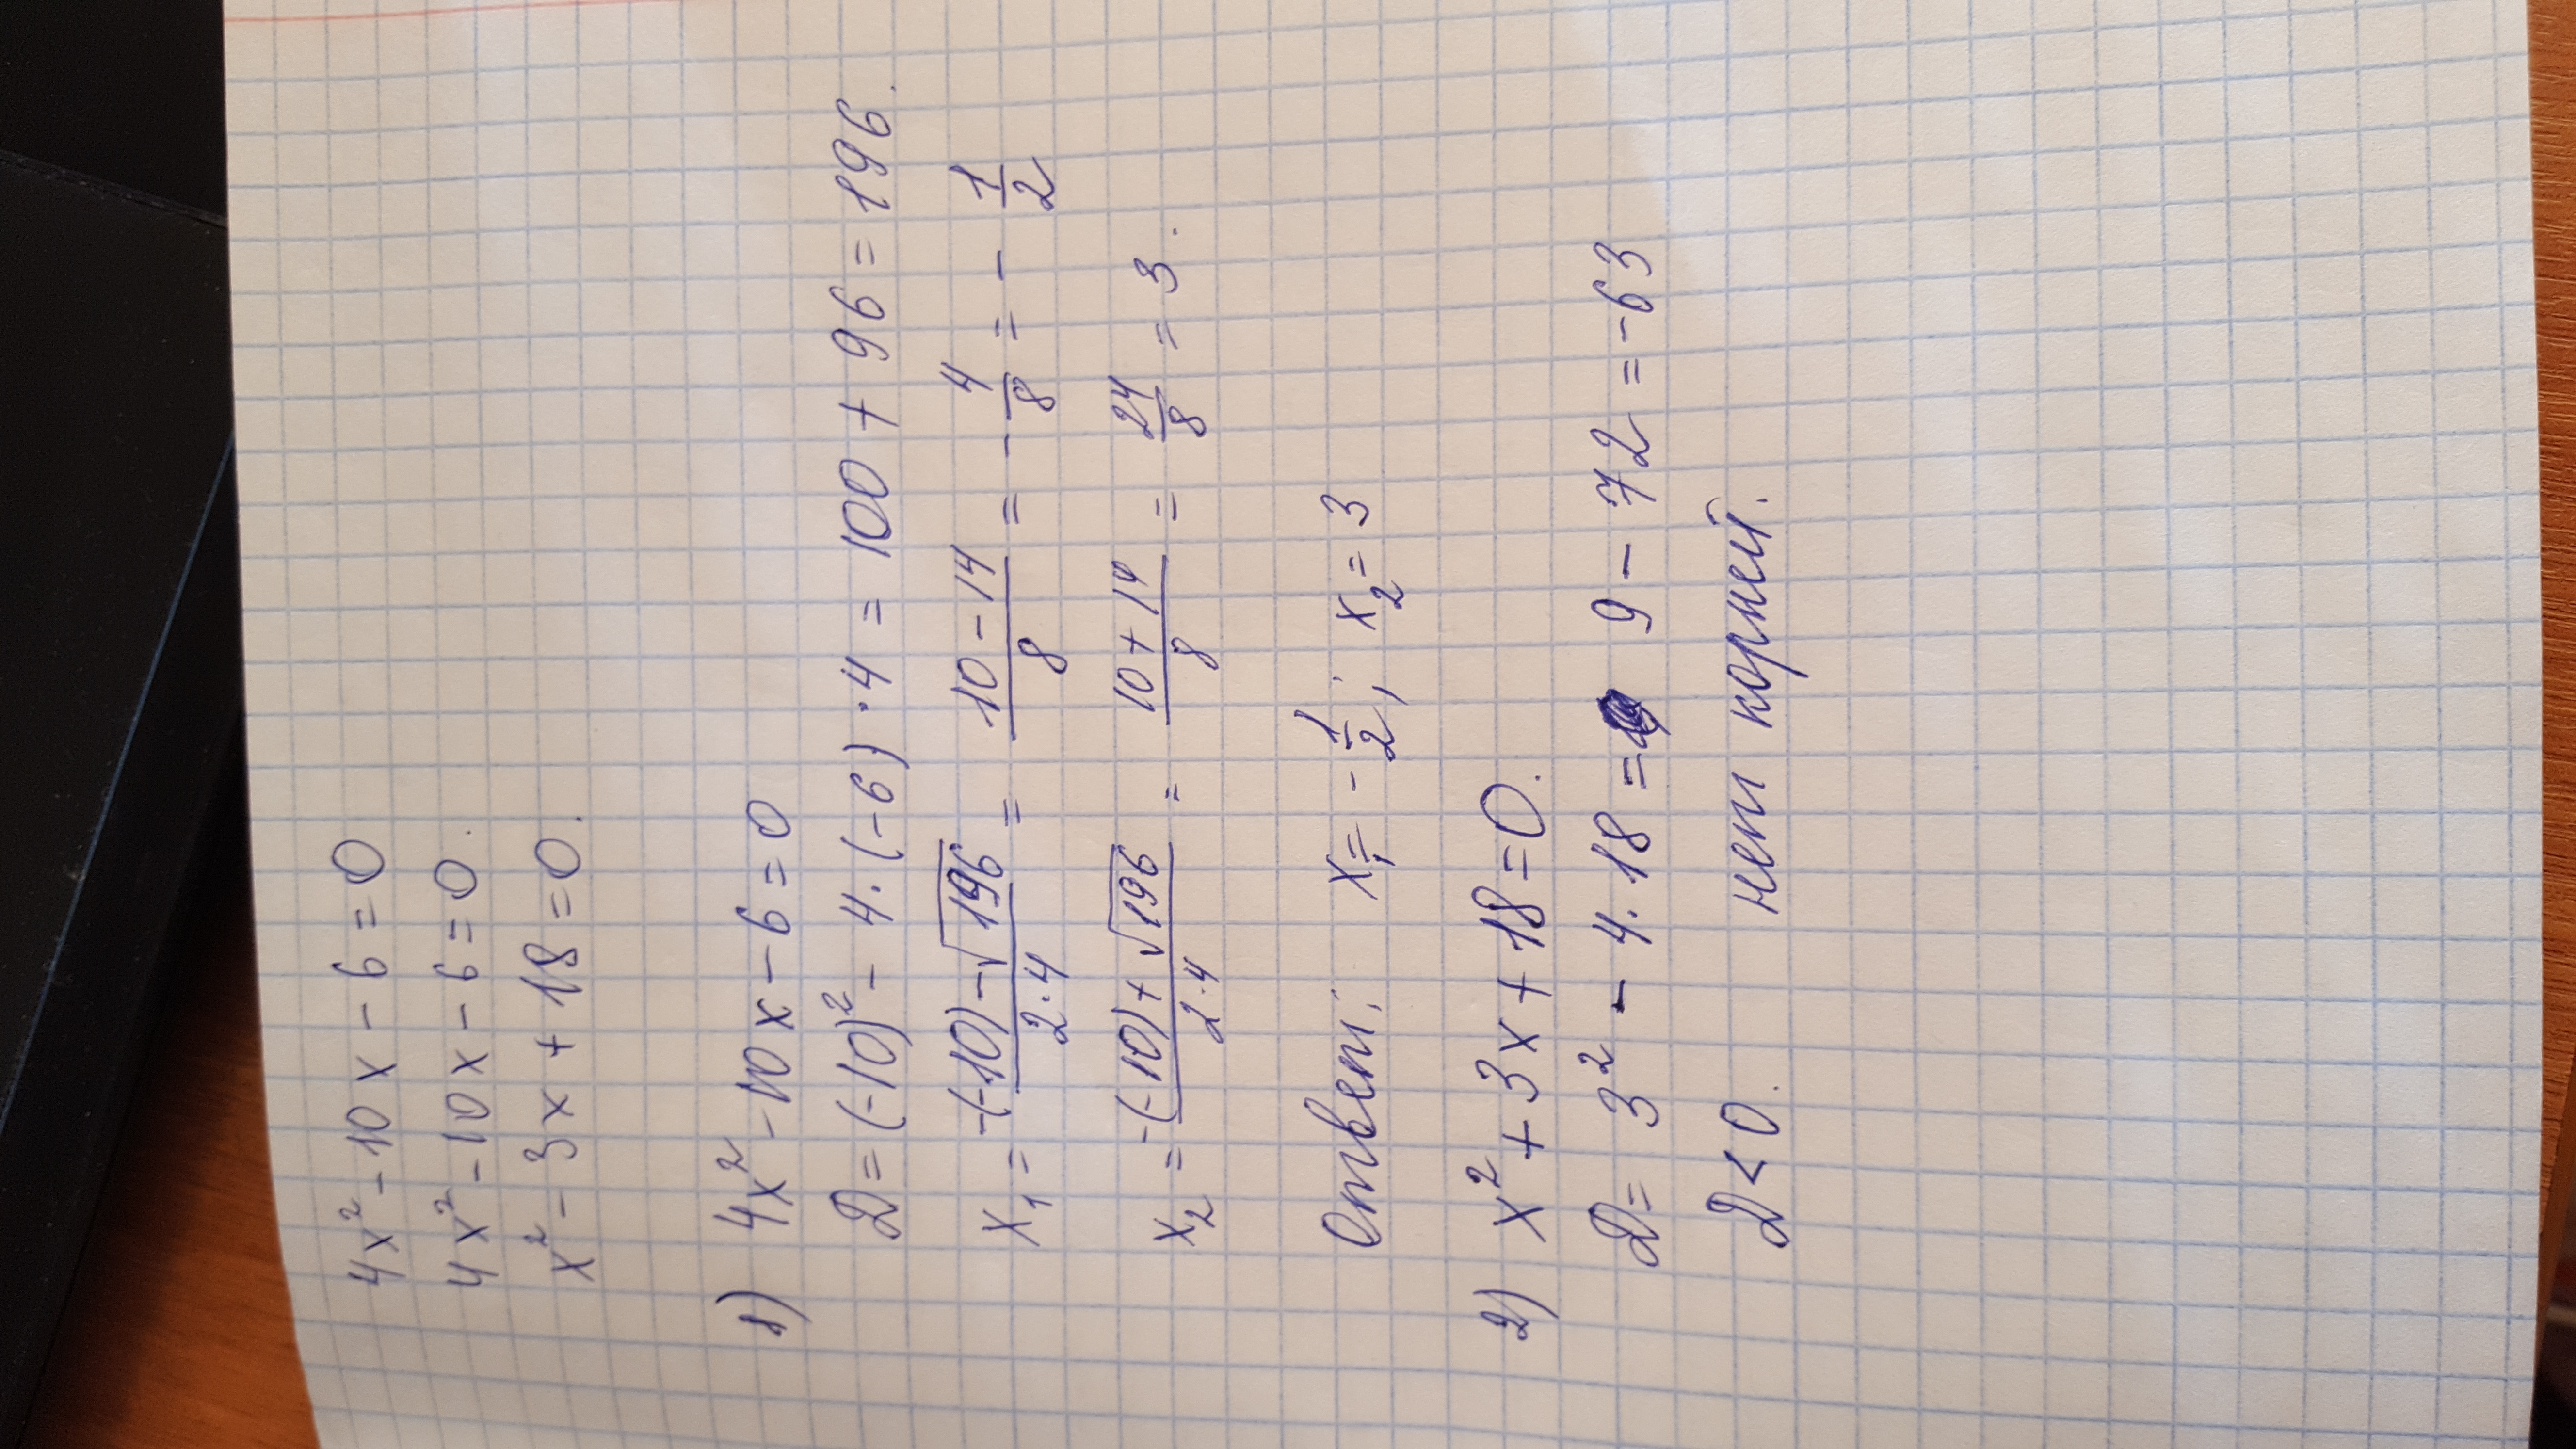 4x² - 10x - 6 = 0
4x² - 10x - 6 = 0.
x² - 3x + 18 = 0.
1) 4x² - 10x - 6 = 0
D = (-10)² - 4 · (-6) · 4 = 100 + 96 = 196.
x₁ = (-(-10) - √196)/(2·4) = (10 - 14)/8 = - 4/8 = - 1/2
x₂ = (-(-10) + √196)/(2·4) = (10 + 14)/8 = 24/8 = 3.
Ответ: x₁ = - 1/2; x₂ = 3
2) x² + 3x + 18 = 0.
D = 3² - 4 · 18 = 9 - 72 = -63
D < 0. нет корней.